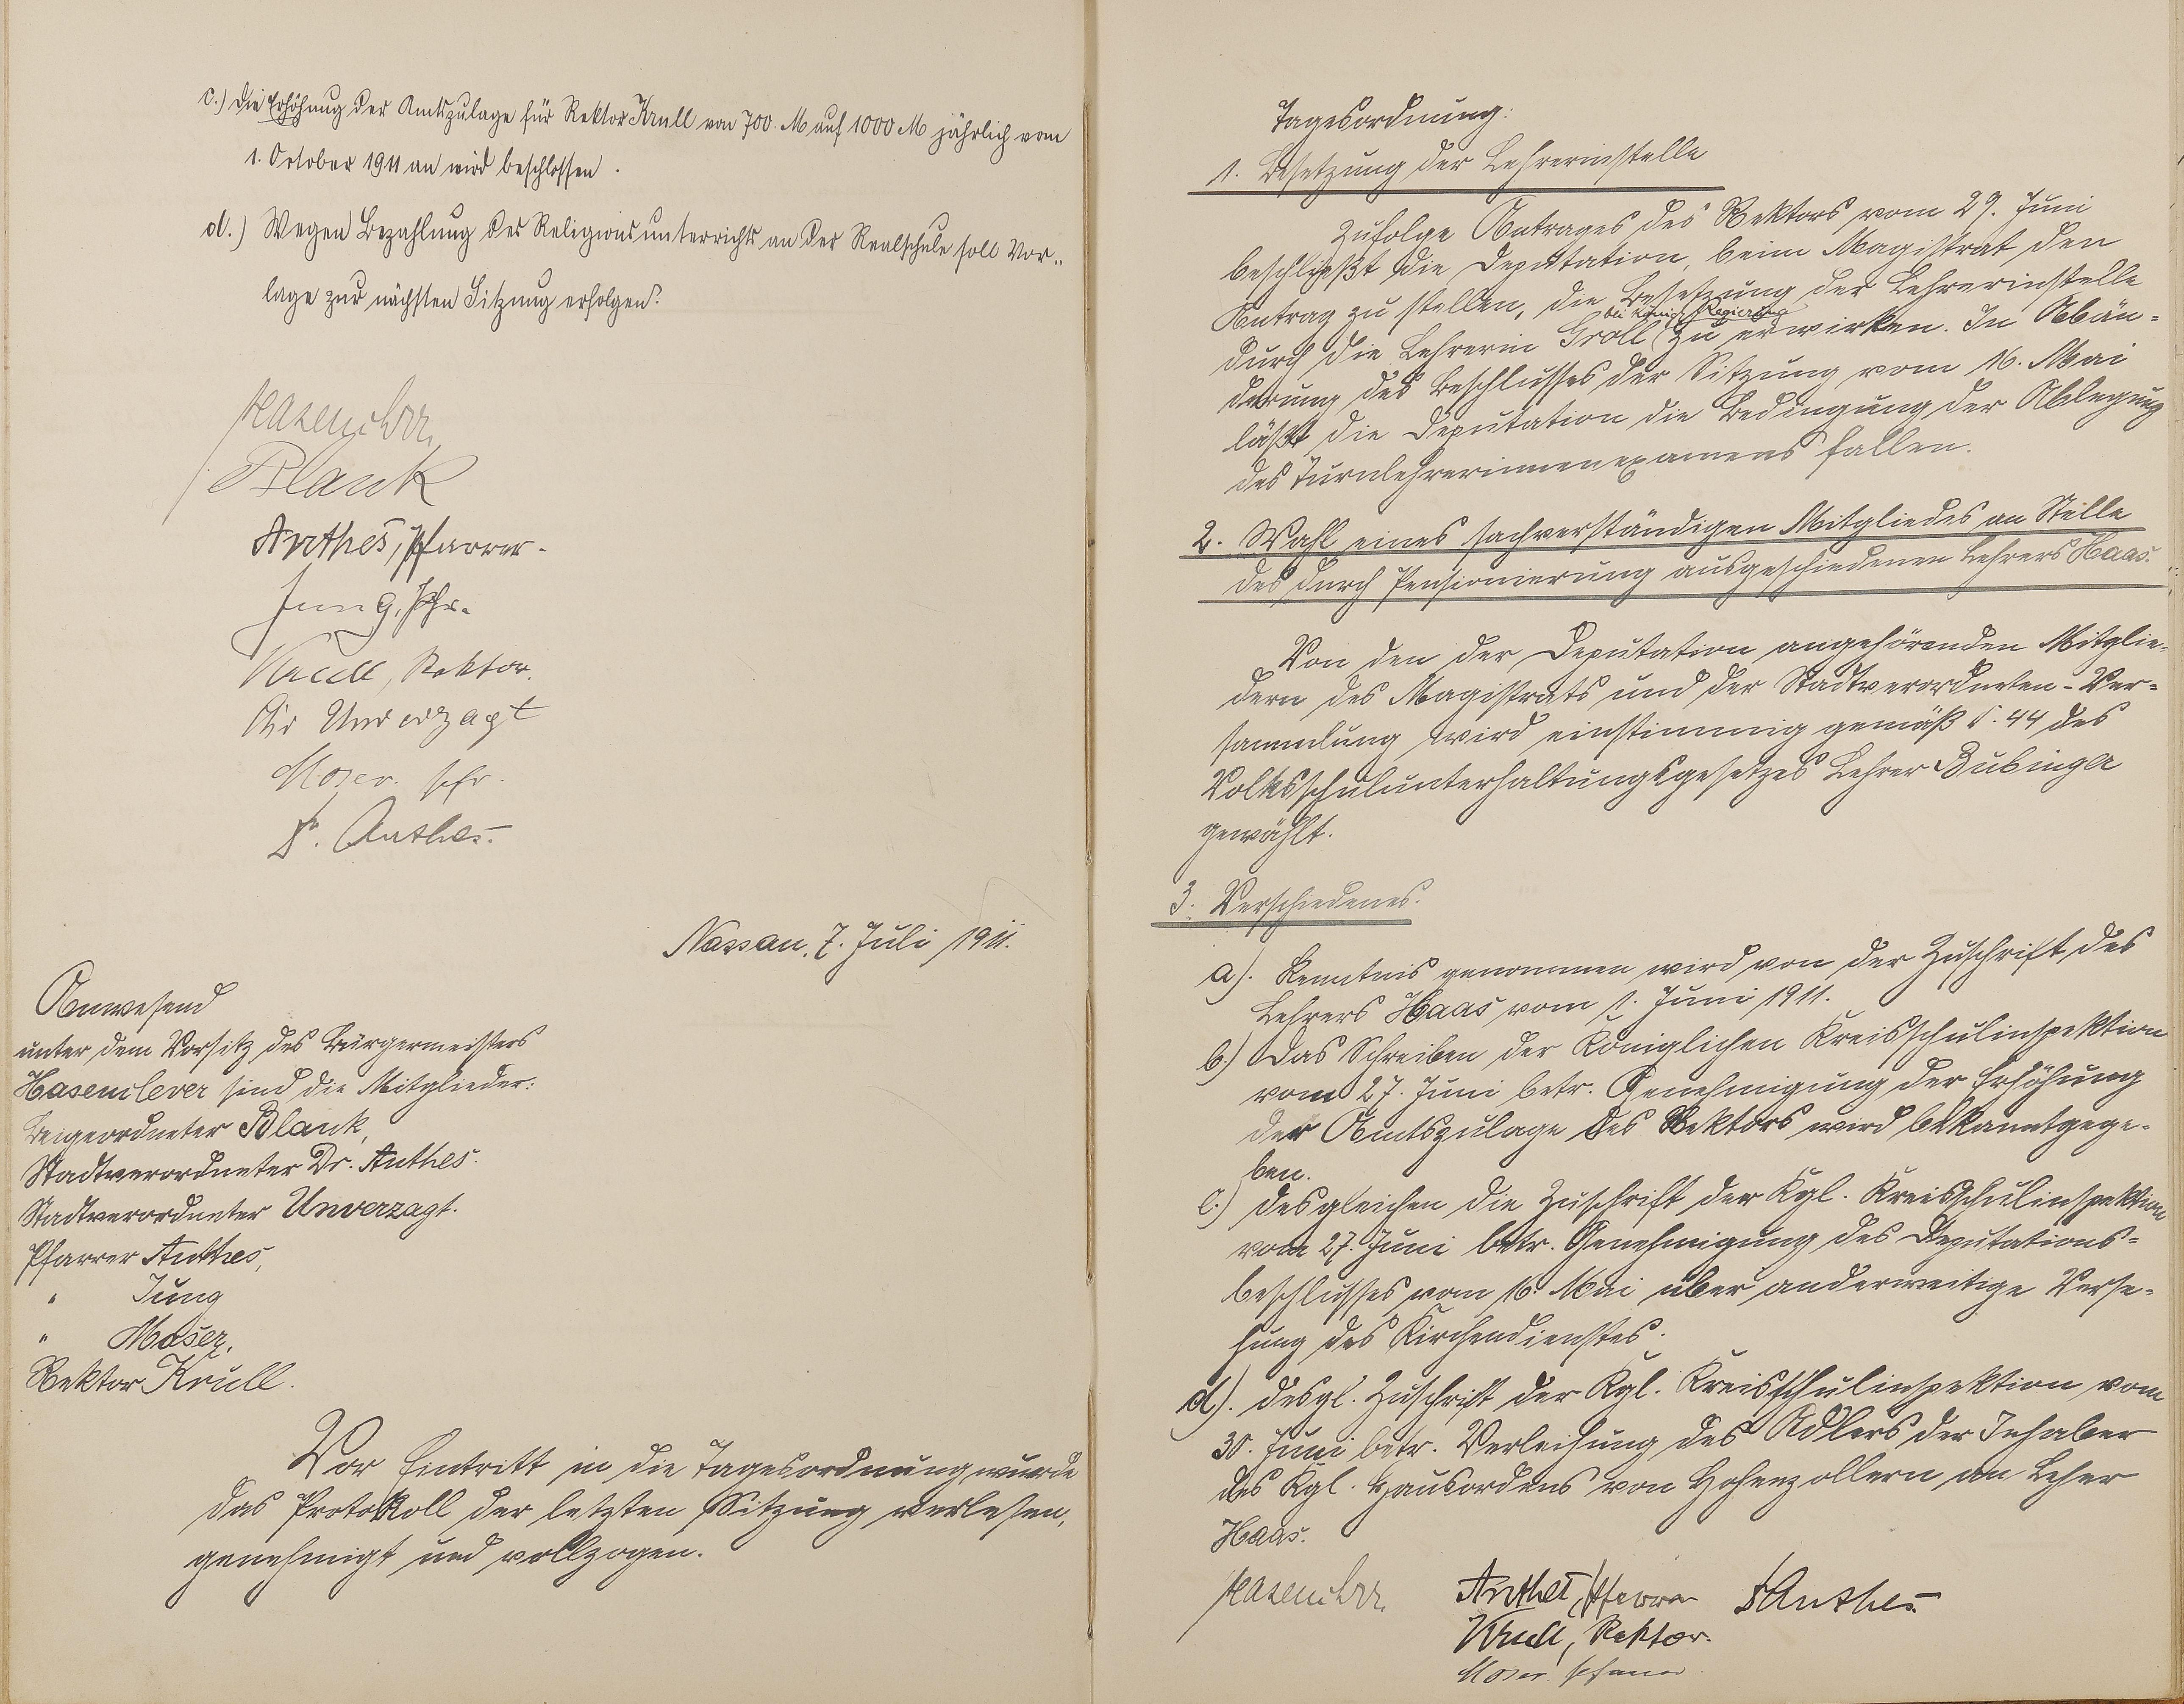 c.) die Erhöhung der Amtszulage für Rektor Krull von 700 M auf 1000 M jährlich vom
1. October 1911 an wird beschlossen.
d.) Wegen Bezahlung des Religionsunterrichts an der Realschule soll Vor-
lage zur nächsten Sitzung erfolgen.
Hasenclever
Blank
Anthes, Pfarrer.
Jung, Pfr.
Krull, Rektor.
Chr Unverzagt
Moser. Pfr.
Dr. Anthes.
Nassau, 7. Juli 1911.
Anwesend
unter dem Vorsitz des Bürgermeisters
Hasenclever sind die Mitglieder:
Beigeordneter Blank,
Stadtverordneter Dr. Anthes.
Stadtverordneter Unverzagt.
Pfarrer Anthes,
" Jung
" Moser,
Rektor Krull.
Vor Eintritt in die Tagesordnung wurde
das Protokoll der letzten Sitzung verlesen,
genehmigt und vollzogen.
Tagesordnung:
1. Besetzung der Lehrerinstelle
Zufolge Antrages des Rektors vom 29. Juni
beschließt die Deputation, beim Magistrat den
Antrag zu stellen, die Besetzung der Lehrerinstelle
bei Königl. Regierung
durch die Lehrerin Groll zu erwirken. In Abän-
derung des Beschlusses der Sitzung vom 16. Mai
läßt die Deputation die Bedingung der Ablegung
des Turnlehrerinnenexamens fallen.
2. Wahl eines sachverständigen Mitgliedes an Stelle
des durch Pensionierung ausgeschiedenen Lehrers Haas.
Von den der Deputation angehörenden Mitglie-
dern des Magistrats und der Stadtverordneten-Ver-
sammlung wird einstimmig gemäß §. 44 des
Volksschulunterhaltungsgesetzes Lehrer Bubinger
gewählt.
3. Verschiedenes.
a). Kenntnis genommen wird von der Zuschrift des
Lehrers Haas vom 1. Juni 1911.
b.) Das Schreiben der Königlichen Kreisschulinspektion
vom 27. Juni betr. Genehmigung der Erhöhung
der Amtszulage des Rektors wird bekanntgege-
ben.
c.) desgleichen die Zuschrift der Kgl. Kreisschulinspektion
vom 27. Juni betr. Genehmigung des Deputations-
beschlusses vom 16. Mai über anderweitige Verse-
hung des Kirchendienstes.
d). desgl. Zuschrift der Kgl. Kreisschulinspektion vom
30. Juni betr. Verleihung des Adlers der Inhaber
des Kgl. Hausordens von Hohenzollern an Leher
Haas.
Hasenclever
Anthes, Pfarrer Dr Anthes.
Krull, Rektor.
Moser. Pfarrer